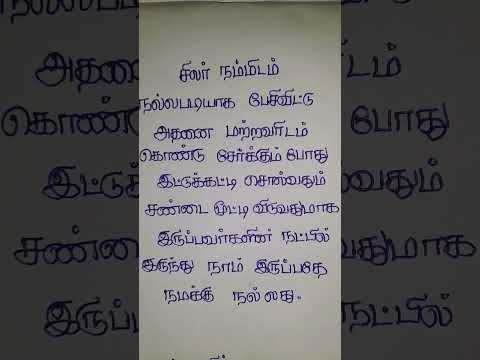 சிலர் நம்மிடம்
நல்லபடியாக பேசிவிட்டு
அதனை மற்றவரிடம்
கொண்டு சேர்க்கும் போது
இட்டுக்கட்டி சொல்வதும்
சண்டை மூட்டி விடுவதுமாக
இருப்பவர்களின் நட்பில்
இருந்து நாம் இருப்பதே
நமக்கு நல்லது.